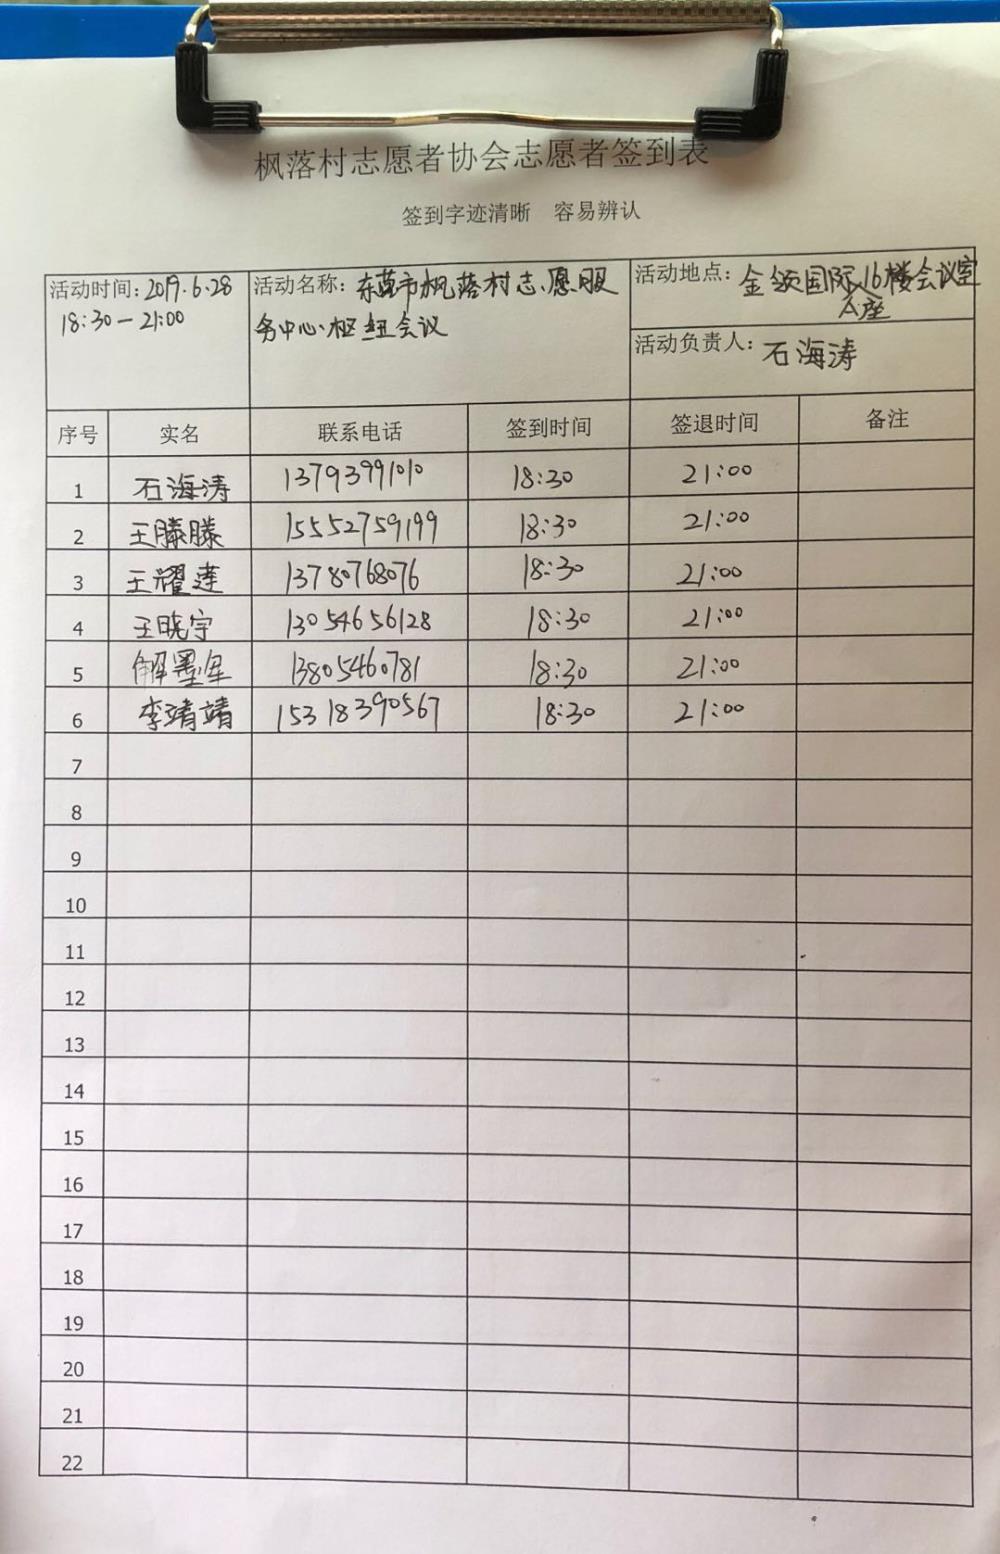 枫落村志愿者协会志愿者签到表
签到字迹清晰 容易辨认
活动时间:2019.6.28
18:30-21:00
活动名称:东营市枫落村志愿服
务中心枢纽会议
活动地点:金领国际A座16楼会议室
活动负责人:石海涛
序号 实名 联系电话 签到时间 签退时间 备注
1 石海涛 13793991010 18:30 21:00
2 王滕滕 15552759199 18:30 21:00
3 王耀莲 13780768076 18:30 21:00
4 王晓宇 13054656128 18:30 21:00
5 解墨 13805460781 18:30 21:00
6 李靖靖 15318390567 18:30 21:00
7
8
9
10
11
12
13
14
15
16
17
18
19
20
21
22